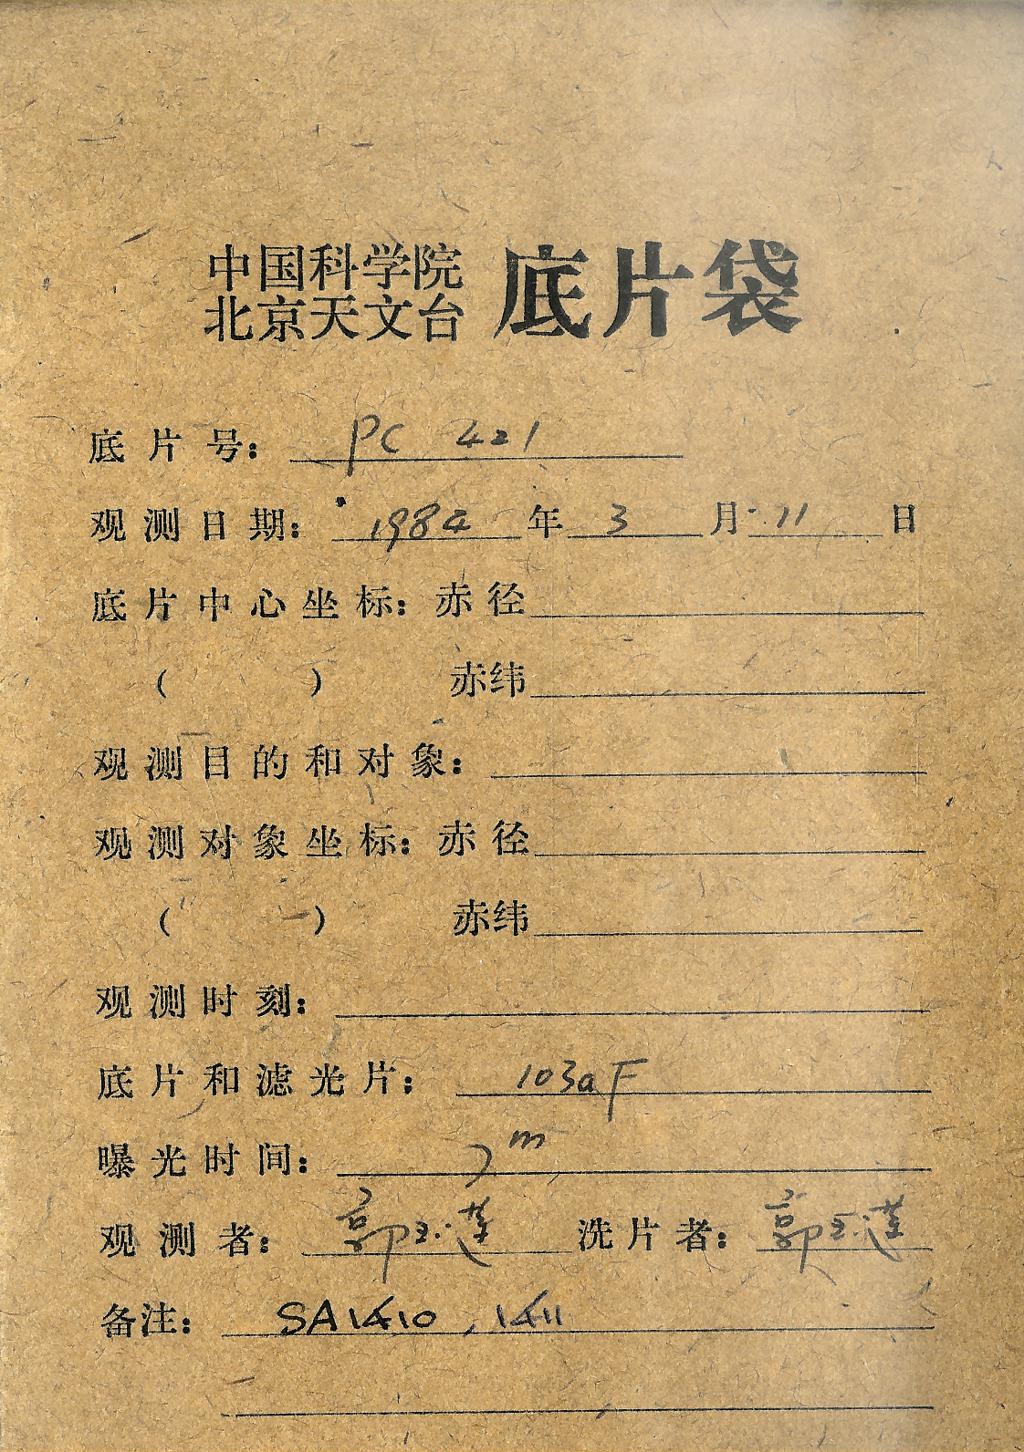 中国科学院
北京天文台 底片袋
底片号： PC 421
观测日期： 1984 年 3 月 11 日
底片中心坐标：赤径
（ ） 赤纬
观测目的和对象：
观测对象坐标：赤径
（ ） 赤纬
观测时刻：
底片和滤光片： 103aF
曝光时间： 7m
观测者： 郭玉莲 洗片者： 郭玉莲
备注： SA1410，1411